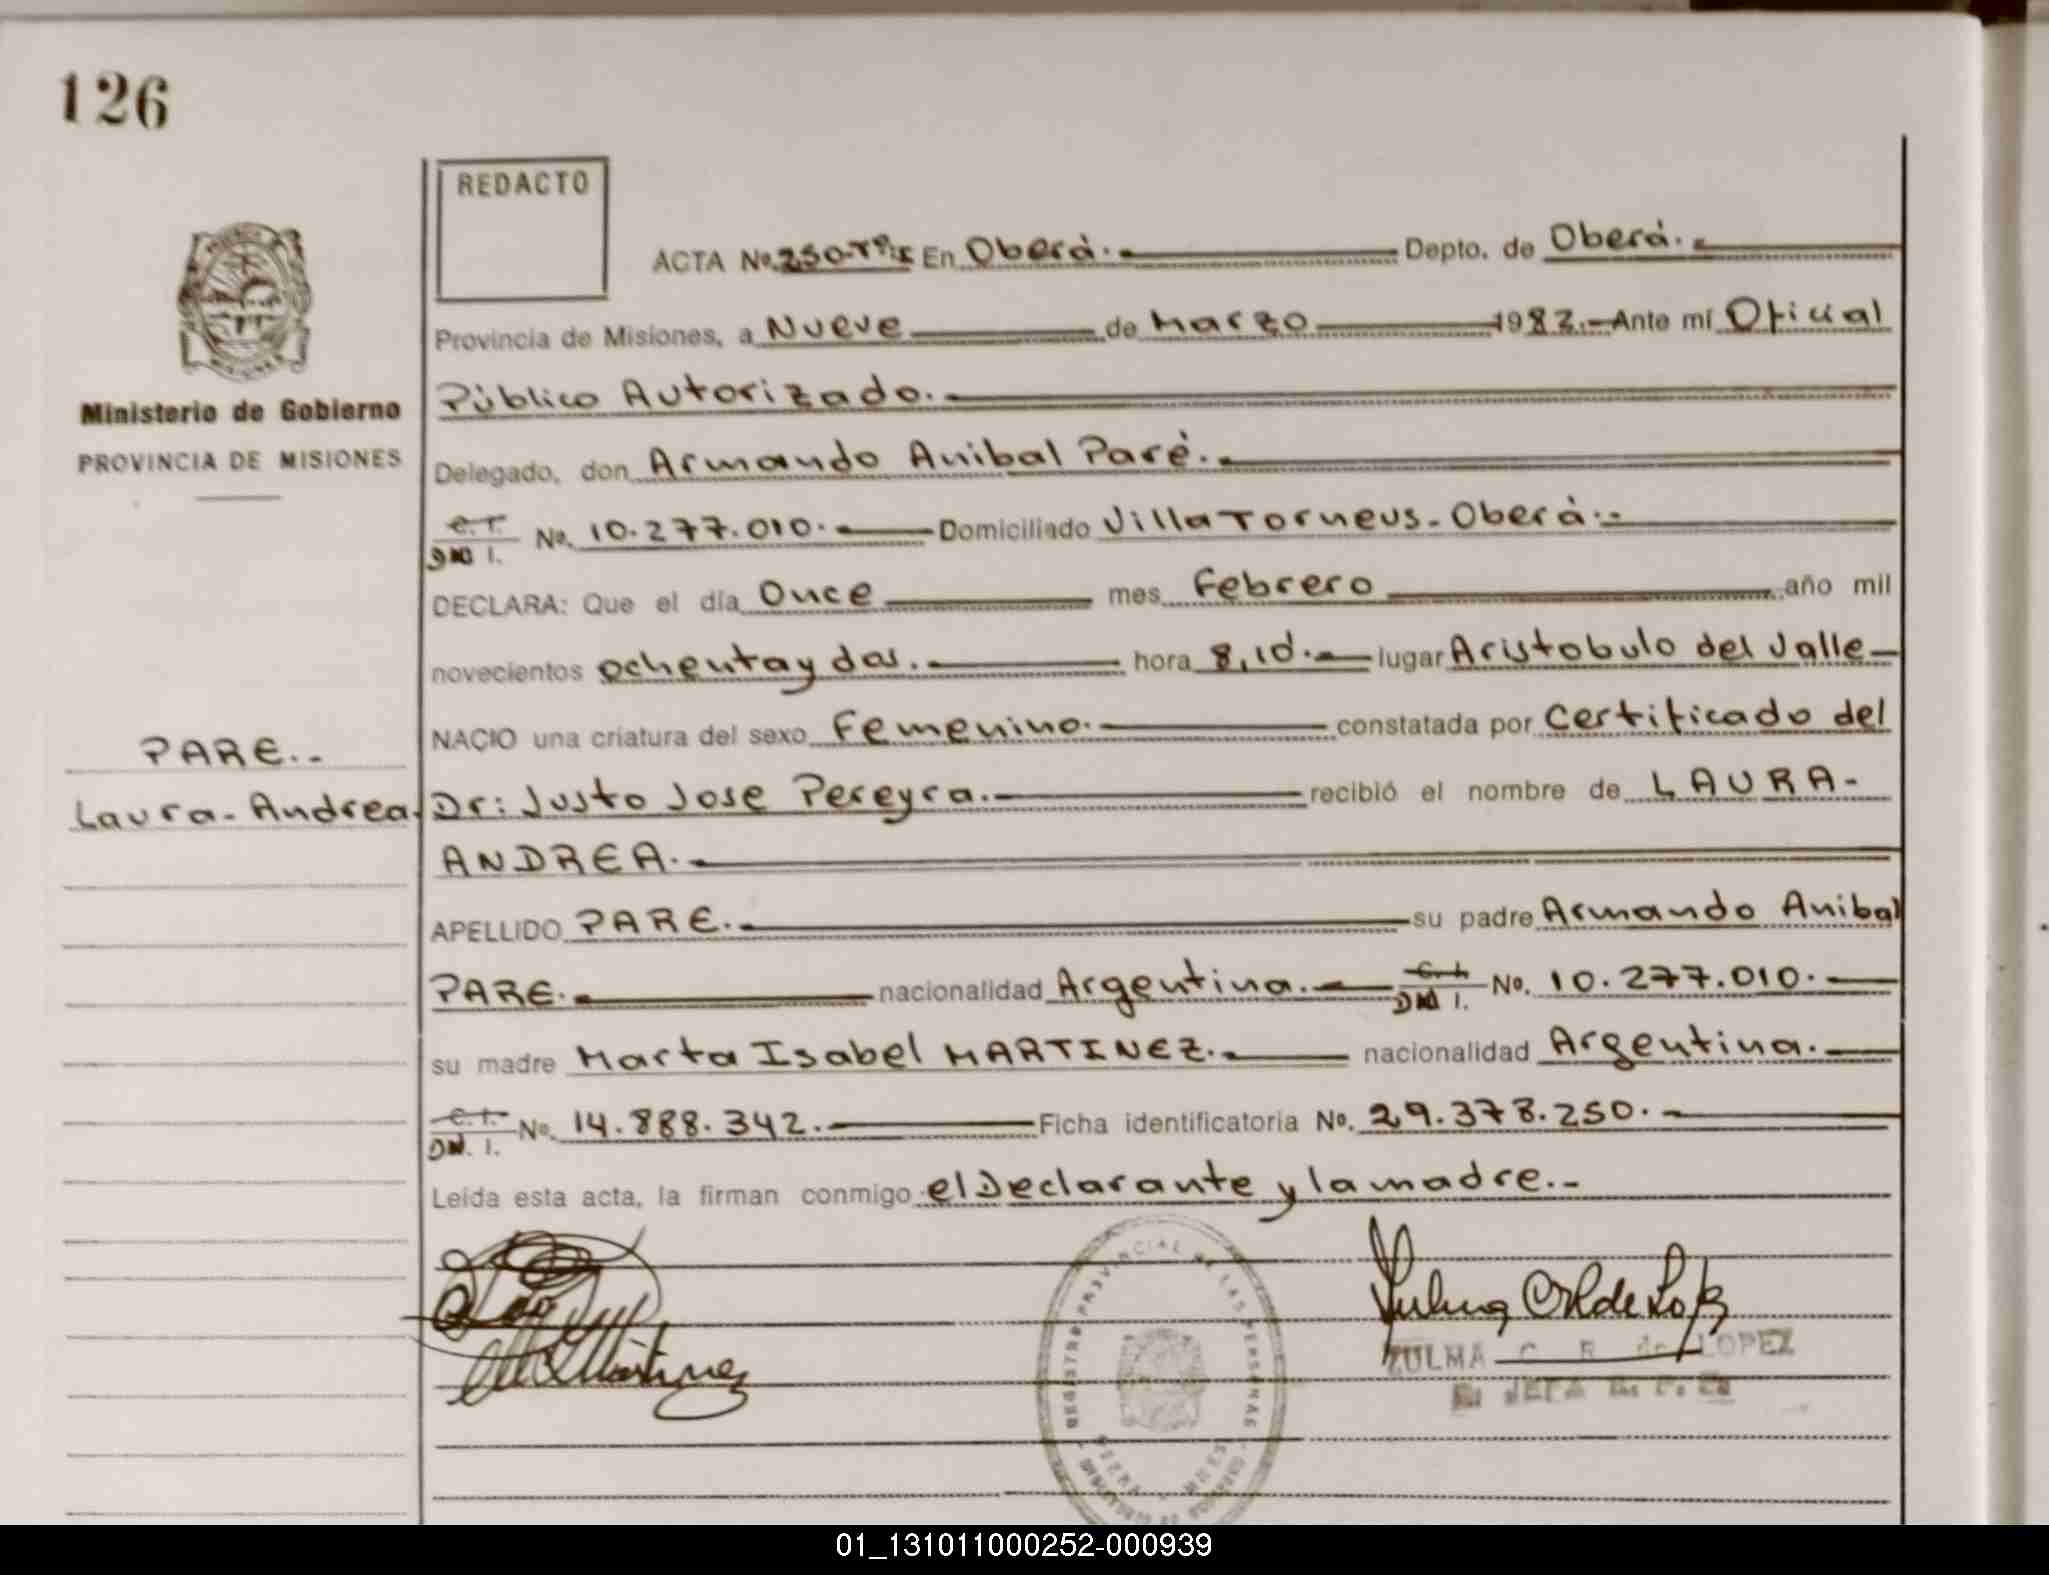 126
REDACTO
ACTA No. 250-Tº IX En Oberá.- Depto. de Oberá.-
Provincia de Misiones, a Nueve de Marzo 1982.- Ante mí Oficial
Público Autorizado.-
Ministerio de Gobierno
PROVINCIA DE MISIONES
Delegado, don Armando Anibal Paré.-
C.I. No. 10.277.010.- Domiciliado Villa Torneus-Oberá.-
DNI I.
DECLARA: Que el día Once mes Febrero año mil
novecientos ochenta y dos.- hora 8,10.- lugar Aristobulo del Valle-
NACIO una criatura del sexo Femenino.- constatada por Certificado del
PARE.-
Laura-Andrea.
Dr: Justo Jose Pereyra.- recibió el nombre de LAURA-
ANDREA.-
APELLIDO PARE.- su padre Armando Anibal
PARE.- nacionalidad Argentina.- C.I. No. 10.277.010.-
DNI I.
su madre Marta Isabel MARTINEZ.- nacionalidad Argentina.-
C.I. No. 14.888.342.- Ficha identificatoria No. 29.378.250.-
DN. I.
Leída esta acta, la firman conmigo el Declarante y la madre.-
REGISTRO PROVINCIAL DE LAS PERSONAS
ZULMA C. R. de LOPEZ
01_131011000252-000939